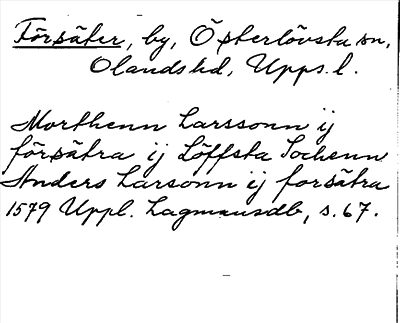 Försäter, by, Österlövsta sn,
Olands hd, Upps. l.
Morthenn Larssonn ij
försätra ij Löffsta Sochenn
Anders Larsonn ij forsätra
1579 Uppl. Lagmansdb, s. 67.